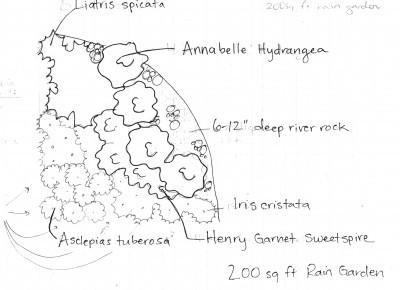 Liatris spicata
200 sq ft rain garden
Annabelle Hydrangea
6-12" deep river rock
Iris cristata
Asclepias tuberosa
Henry Garnet Sweetspire
200 sq ft Rain Garden